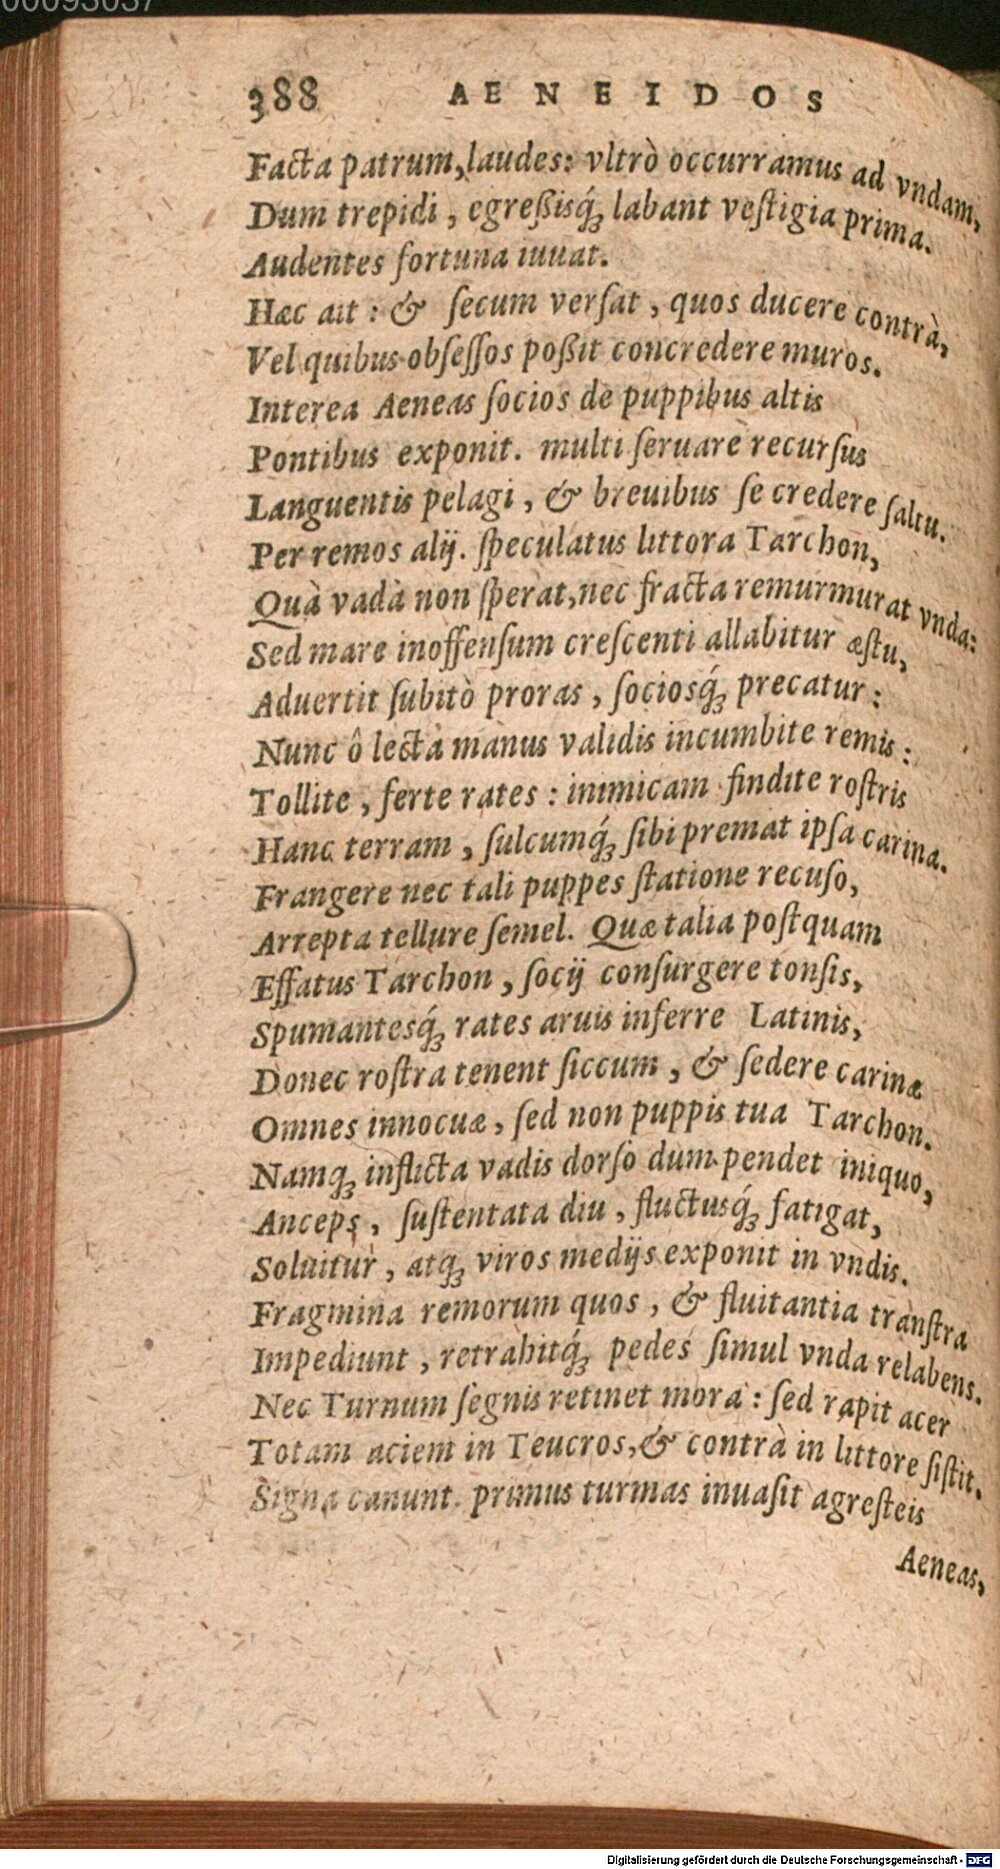 00093037
388 AENEIDOS
Facta patrum, laudes: vltrò occurramus ad vndam,
Dum trepidi, egreßisq́ꝫ labant veſtigia prima.
Audentes fortuna iuuat.
Hæc ait: & ſecum verſat, quos ducere contrà,
Vel quibus obſeſſos poßit concredere muros.
Interea Aeneas ſocios de puppibus altis
Pontibus exponit. multi ſeruare recurſus
Languentis pelagi, & breuibus ſe credere ſaltu.
Per remos alij. ſpeculatus littora Tarchon,
Quà vada non ſperat, nec fracta remurmurat vnda:
Sed mare inoffenſum creſcenti allabitur æſtu,
Aduertit ſubitò proras, ſociosq́ꝫ precatur:
Nunc ô lecta manus validis incumbite remis:
Tollite, ferte rates: inimicam findite roſtris
Hanc terram, ſulcumq́ꝫ ſibi premat ipſa carina.
Frangere nec tali puppes ſtatione recuſo,
Arrepta tellure ſemel. Quæ talia poſtquam
Effatus Tarchon, ſocij conſurgere tonſis,
Spumantesq́ꝫ rates aruis inferre Latinis,
Donec roſtra tenent ſiccum, & ſedere carinæ
Omnes innocuæ, ſed non puppis tua Tarchon.
Namqꝫ inflicta vadis dorſo dum pendet iniquo,
Anceps, ſuſtentata diu, fluctusq́ꝫ fatigat,
Soluitur, atqꝫ viros medijs exponit in vndis.
Fragmina remorum quos, & fluitantia tranſtra
Impediunt, retrahitq́ꝫ pedes ſimul vnda relabens.
Nec Turnum ſegnis retinet mora: ſed rapit acer
Totam aciem in Teucros, & contrà in littore ſiſtit.
Signa canunt. primus turmas inuaſit agreſteis
Aeneas,
Digitalisierung gefördert durch die Deutsche Forschungsgemeinschaft - DFG